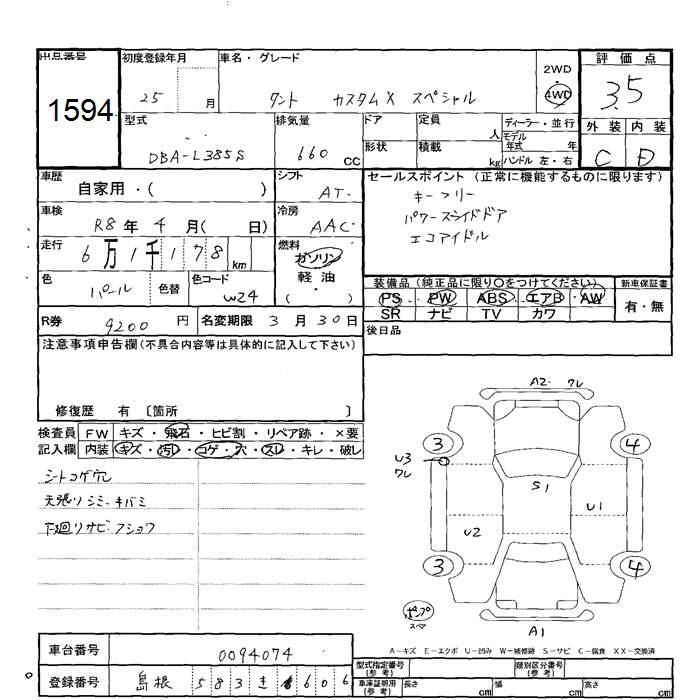 出品番号 1594
初度登録年月 25 月
車名・グレード タント カスタムX スペシャル
2WD
4WD
評価点 3.5
外装 内装
C D
型式 DBA-L385S
排気量 660 cc
ドア
定員 人
ディーラー・並行
モデル年式 年
形状
積載 kg
ハンドル 左・右
車歴 自家用・( )
シフト AT
セールスポイント (正常に機能するものに限ります)
キーフリー
パワースライドドア
エコアイドル
車検 R8年 4月( 日)
冷房 AAC
走行 6万1千178 km
燃料 ガソリン
軽油
( )
色 パール 色替
色コード W24
装備品 (純正品に限り○をつけてください)
PS PW ABS エアB AW
SR ナビ TV カワ
新車保証書
有・無
R券 9200 円
名変期限 3月30日
後日品
注意事項申告欄(不具合内容等は具体的に記入して下さい)
修復歴 有 〔箇所 〕
検査員記入欄
FW キズ・飛石・ヒビ割・リペア跡・×要
内装 キズ・汚れ・コゲ・穴・スレ・キレ・破レ
シートコゲ穴
天張リシミ・キバミ
下廻リサビ・フショク
A2 ワレ
3 4
U3
ワレ
S1
U1
U2
3 4
パンプ
スペア
A1
A-キズ E-エクボ U-凹み W-補修跡 S-サビ C-腐食 XX-交換済
車台番号 0094074
登録番号 島根 583 き 606
型式指定番号(参考)
類別区分番号(参考)
車庫証明用(参考) 長さ cm 幅 cm 高さ cm